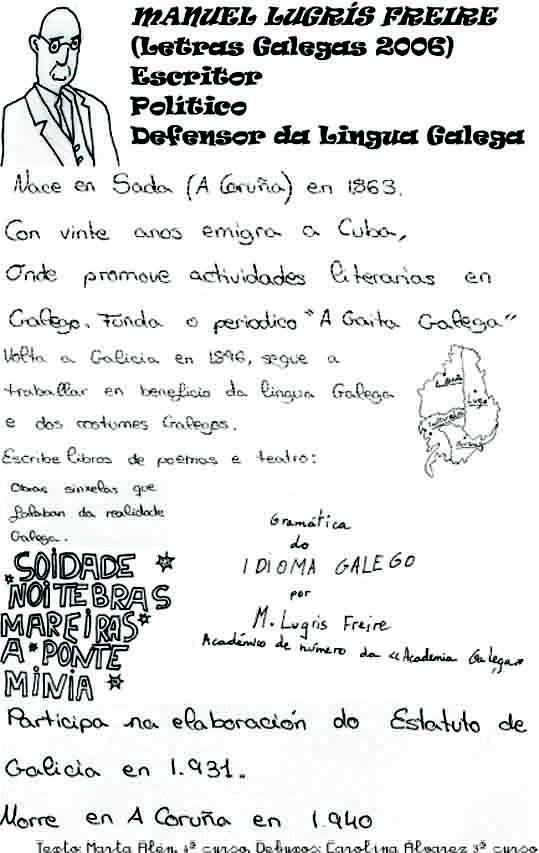 MANUEL LUGRÍS FREIRE
(Letras Galegas 2006)
Escritor
Político
Defensor da Lingua Galega
Nace en Sada (A Coruña) en 1863.
Con vinte anos emigra a Cuba,
Onde promove actividades literarias en
Galego. Funda o periodico "A Gaita Galega"
Volta a Galicia en 1896, segue a
traballar en beneficio da lingua Galega
e dos costumes Galegos.
Escribe libros de poemas e teatro:
Obras sinxelas que
falaban da realidade
Galega.
Lugo
Gramática
do
IDIOMA GALEGO
por
M. Lugris Freire
Académico de número da «Academia Galega»
SOIDADE
NOITEBRAS
MAREIRAS
A PONTE
MINIA
Participa na elaboración do Estatuto de
Galicia en 1.931.
Morre en A Coruña en 1.940
Texto: Marta Alén, 4º curso. Debuxos: Carolina Álvarez 3º curso